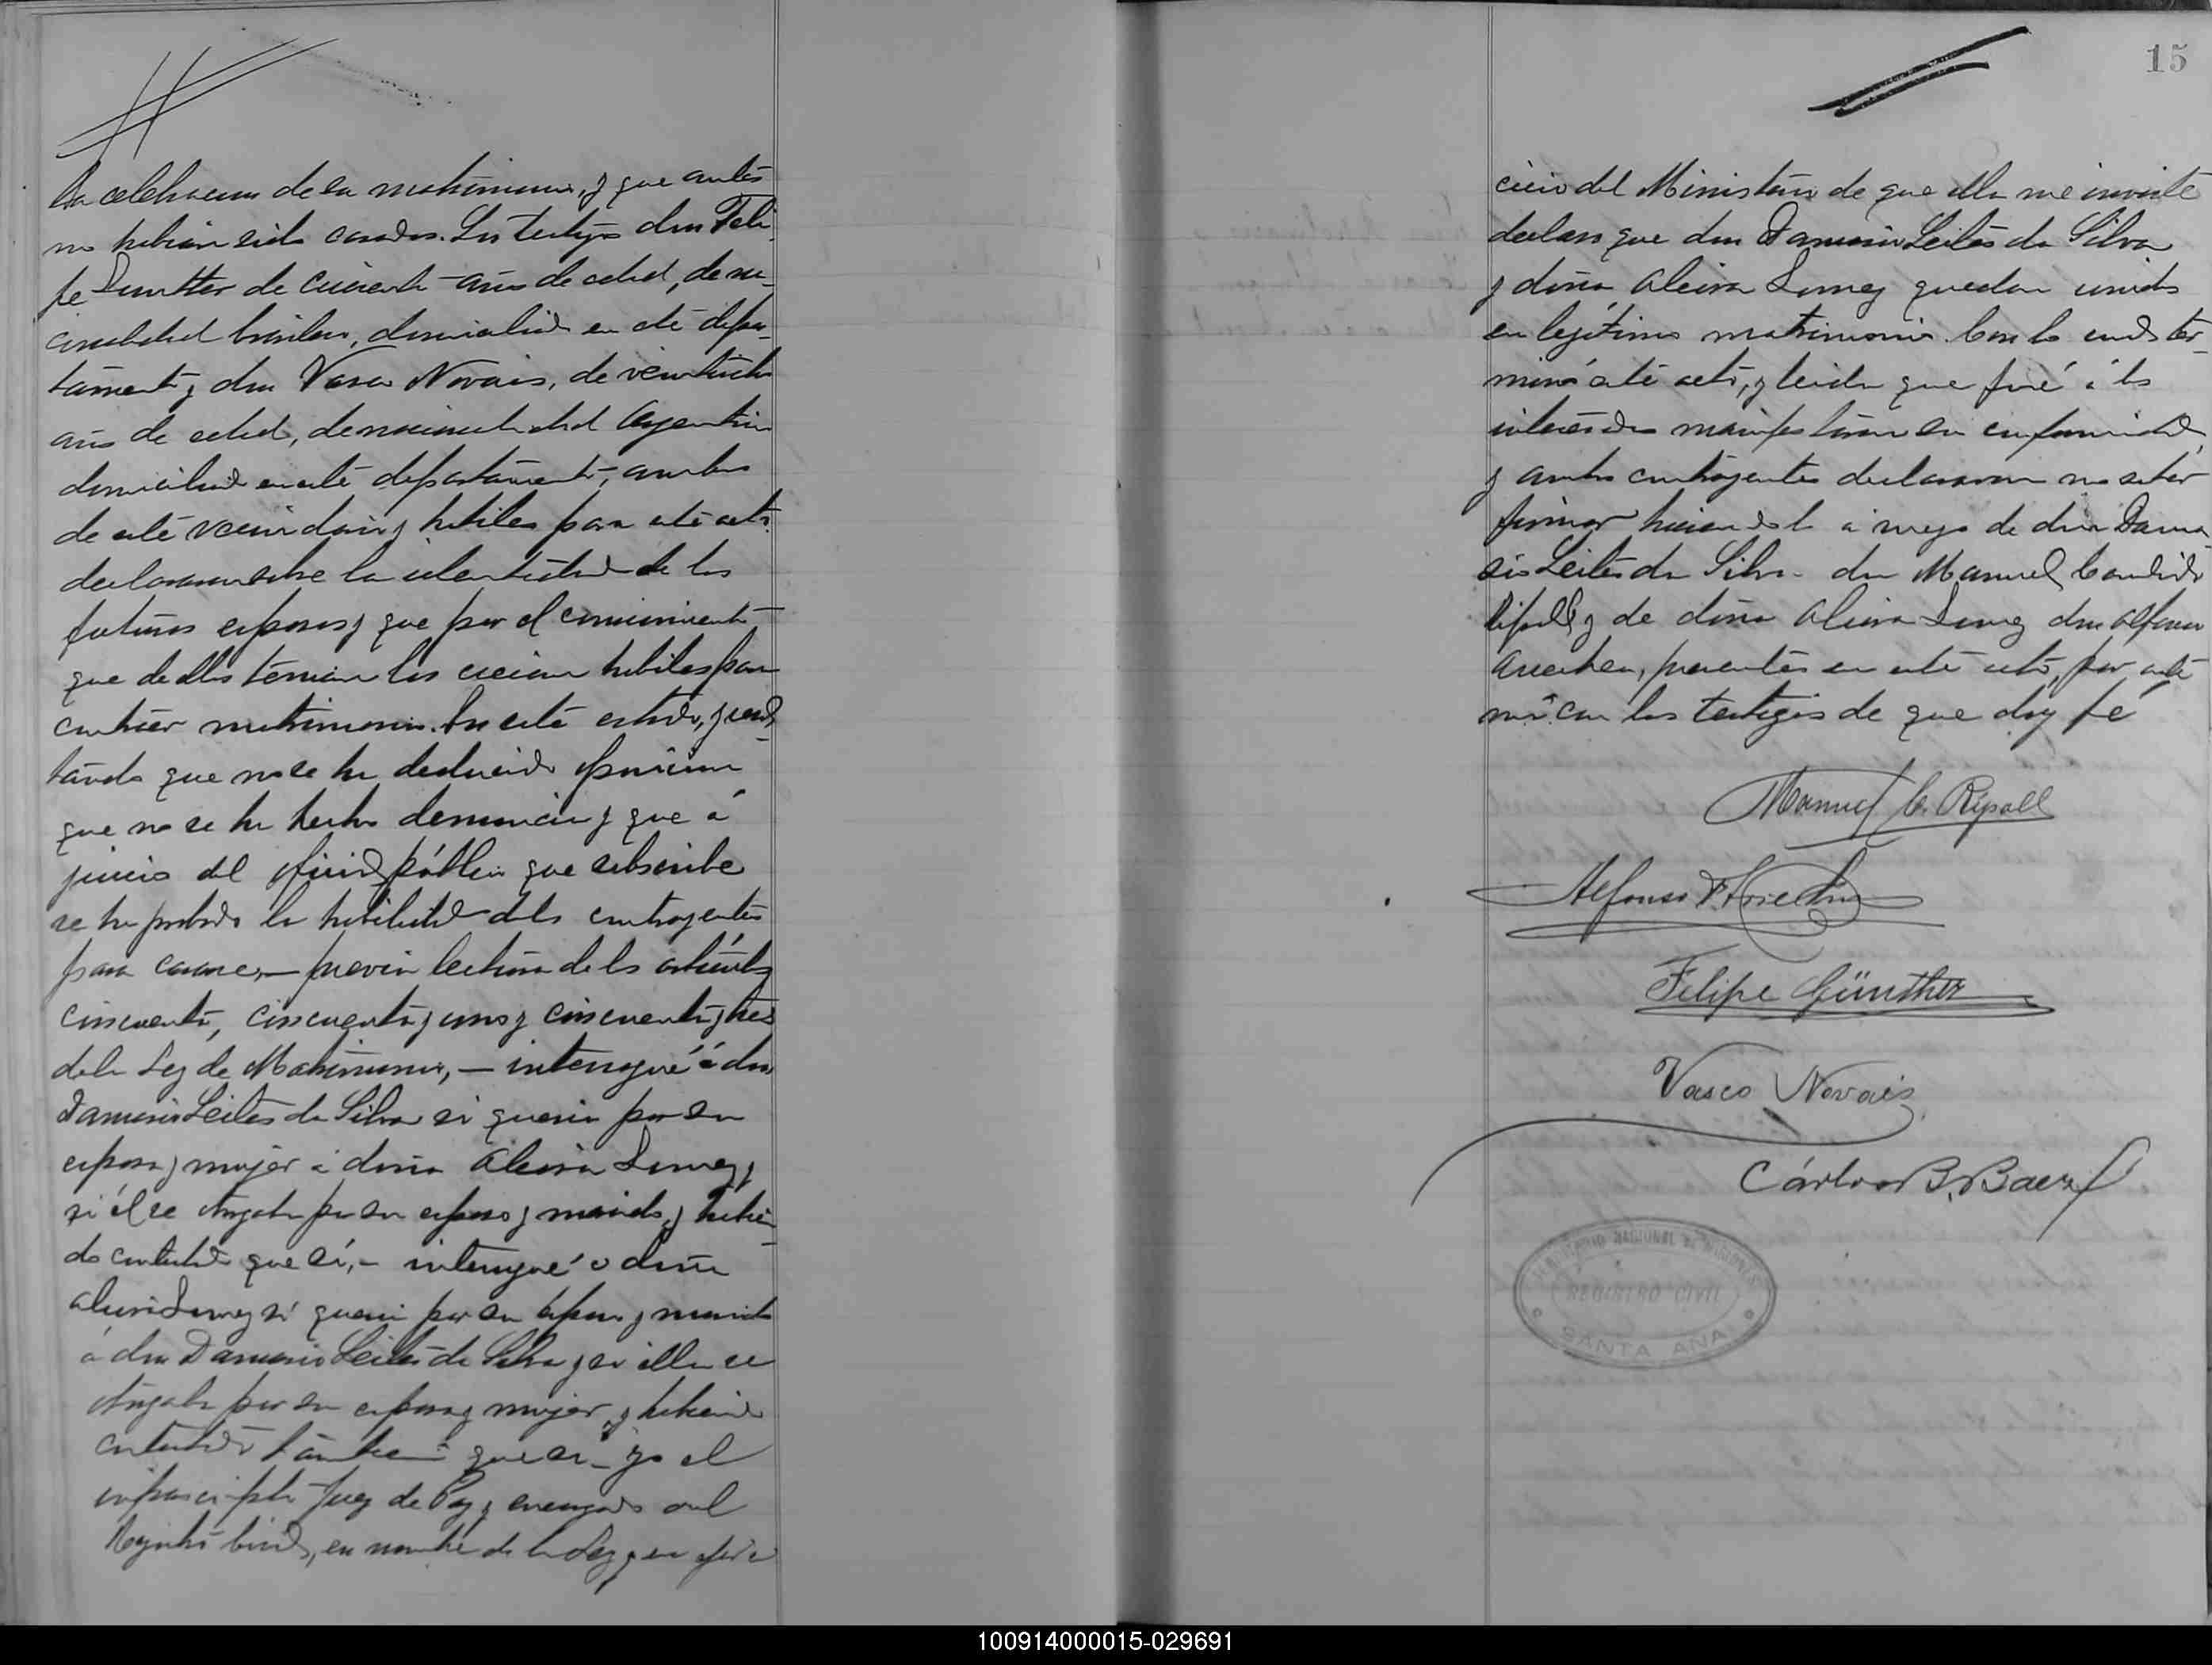 la celebracion de su matrimonio, y que antes
no habian sido casados. Los testigos don Feli-
pe Gunther de cincuenta años de edad, de na-
cionalidad brasilero, domiciliado en este depar-
tamento y don Vasco Novais, de veintiocho
años de edad, de nacionalidad Argentina
domiciliado en este departamento, ambos
de este vecindario y habiles para este acto
declararon sobre la identidad de los
futuros esposos y que por el conocimiento
que de ellos tenian los creian habiles para
contraer matrimonio. En este estado, y resul-
tando que no se ha deducido oposicion
que no se ha hecho denuncia y que á
juicio del oficial público que subscribe
se ha probado la habilidad de los contrayentes
para casarse, — previa lectura de los articulos
cincuenta, cincuenta y uno y cincuenta y tres
de la Ley de Matrimonio, — interrogué á don
Damasio Leites da Silva si queria por su
esposa y mujer á doña Alcira
si él se otorgaba por su esposo y marido, y habien-
do contestado que sí, — interrogué á doña
Alcira si queria por su esposo y marido
á don Damasio Leites da Silva y si ella se
otorgaba por su esposa y mujer, y habiendo
contestado tambien que si — yo el
infrascripto Juez de Paz y encargado del
Registro Civil, en nombre de la Ley y en ejer-
15
cicio del Ministerio de que ella me inviste
declaro que don Damasio Leites da Silva
y doña Alcira quedan unidos
en legítimo matrimonio. Con lo cual ter-
minó este acto, y leida que fué á los
interesados manifestaron su conformidad,
y ambos contrayentes declararon no saber
firmar haciendolo á ruego de don Dama-
sio Leites da Silva don Manuel Candido
Ripoll y de doña Alcira don Alfonso
presentes en este acto, por ante
mí con los testigos de que doy fé
Manuel C. Ripoll
Alfonso
Felipe Günther
Vasco Novais
Cárlos B. Baez
REGISTRO CIVIL
SANTA ANA
100914000015-029691